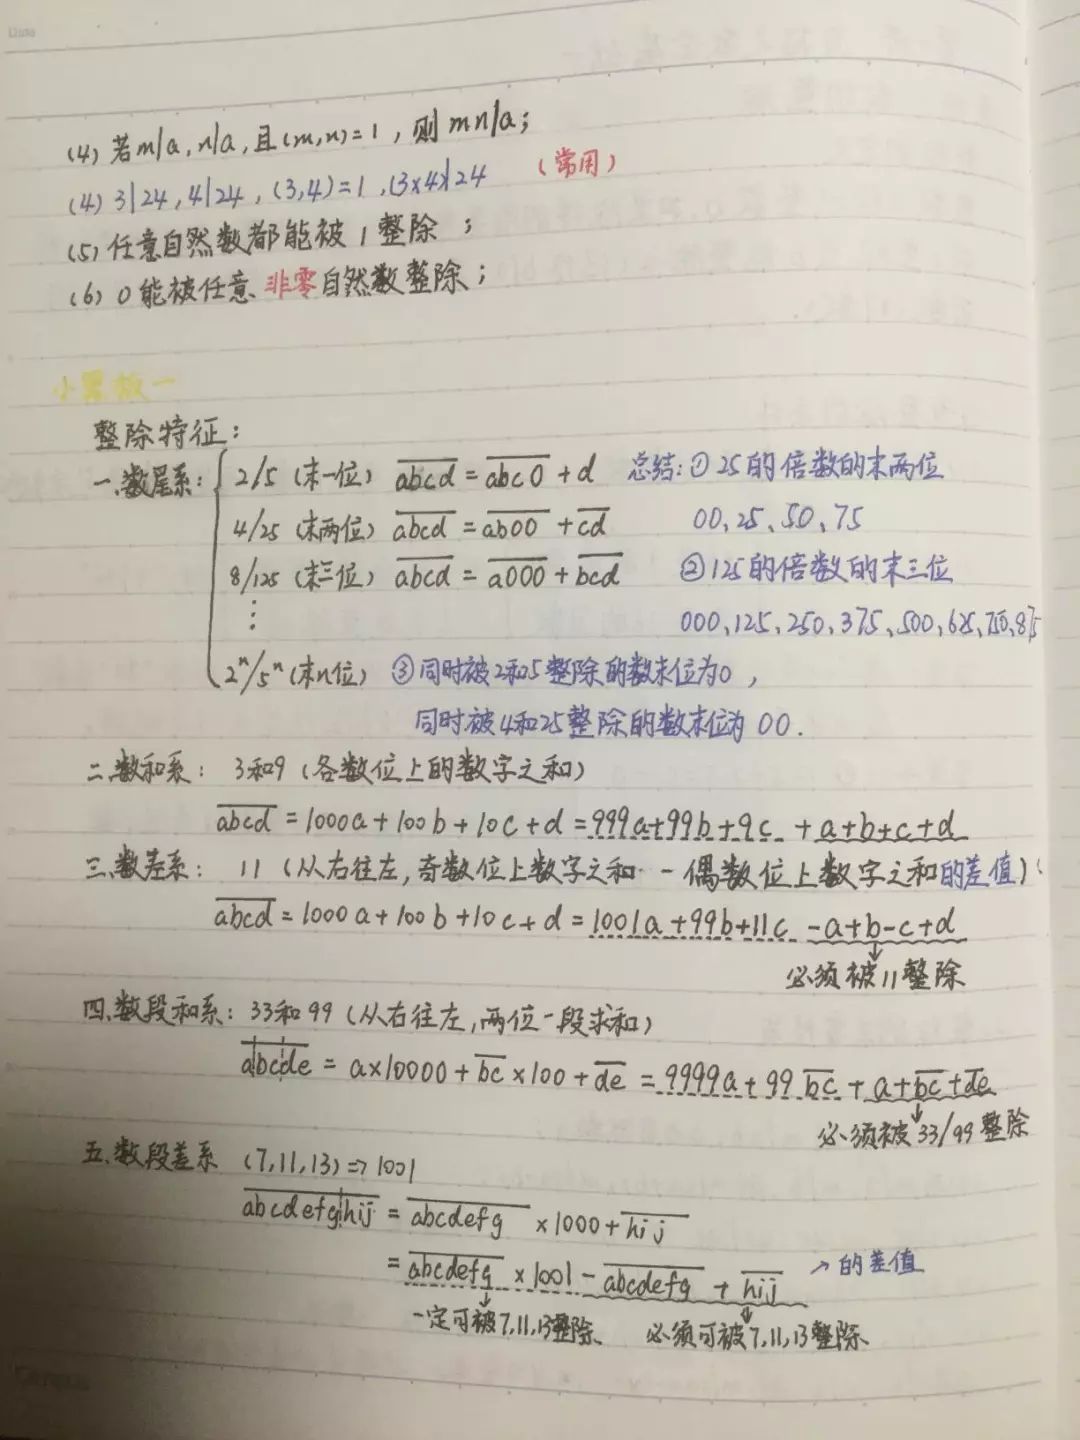 (4) 若m|a,n|a,且(m,n)=1,则mn|a;
(4) 3|24,4|24,(3,4)=1,(3×4)|24 (常用)
(5) 任意自然数都能被1整除;
(6) 0能被任意非零自然数整除;
小黑板一
整除特征:
一.数尾系: 2/5 (末一位) abcd=abc0+d 总结:①25的倍数的末两位
4/25 (末两位) abcd=ab00+cd 00,25、50、75
8/125 (末三位) abcd=a000+bcd ②125的倍数的末三位
⋮ 000,125,250,375,500,625,750,875
2ⁿ/5ⁿ(末n位) ③同时被2和5整除的数末位为0,
同时被4和25整除的数末位为00.
二.数和系: 3和9 (各数位上的数字之和)
abcd=1000a+100b+10c+d=999a+99b+9c+a+b+c+d
三.数差系: 11 (从右往左,奇数位上数字之和-偶数位上数字之和的差值):
abcd=1000a+100b+10c+d=1001a+99b+11c-a+b-c+d
必须被11整除
四.数段和系: 33和99 (从右往左,两位一段求和)
abcde=a×10000+bc×100+de=9999a+99bc+a+bc+de
必须被33/99整除
五.数段差系 (7,11,13)=>1001
abcdefghij=abcdefg×1000+hij
=abcdefg×1001-abcdefg+hij →的差值
一定可被7,11,13整除、 必须可被7,11,13整除、